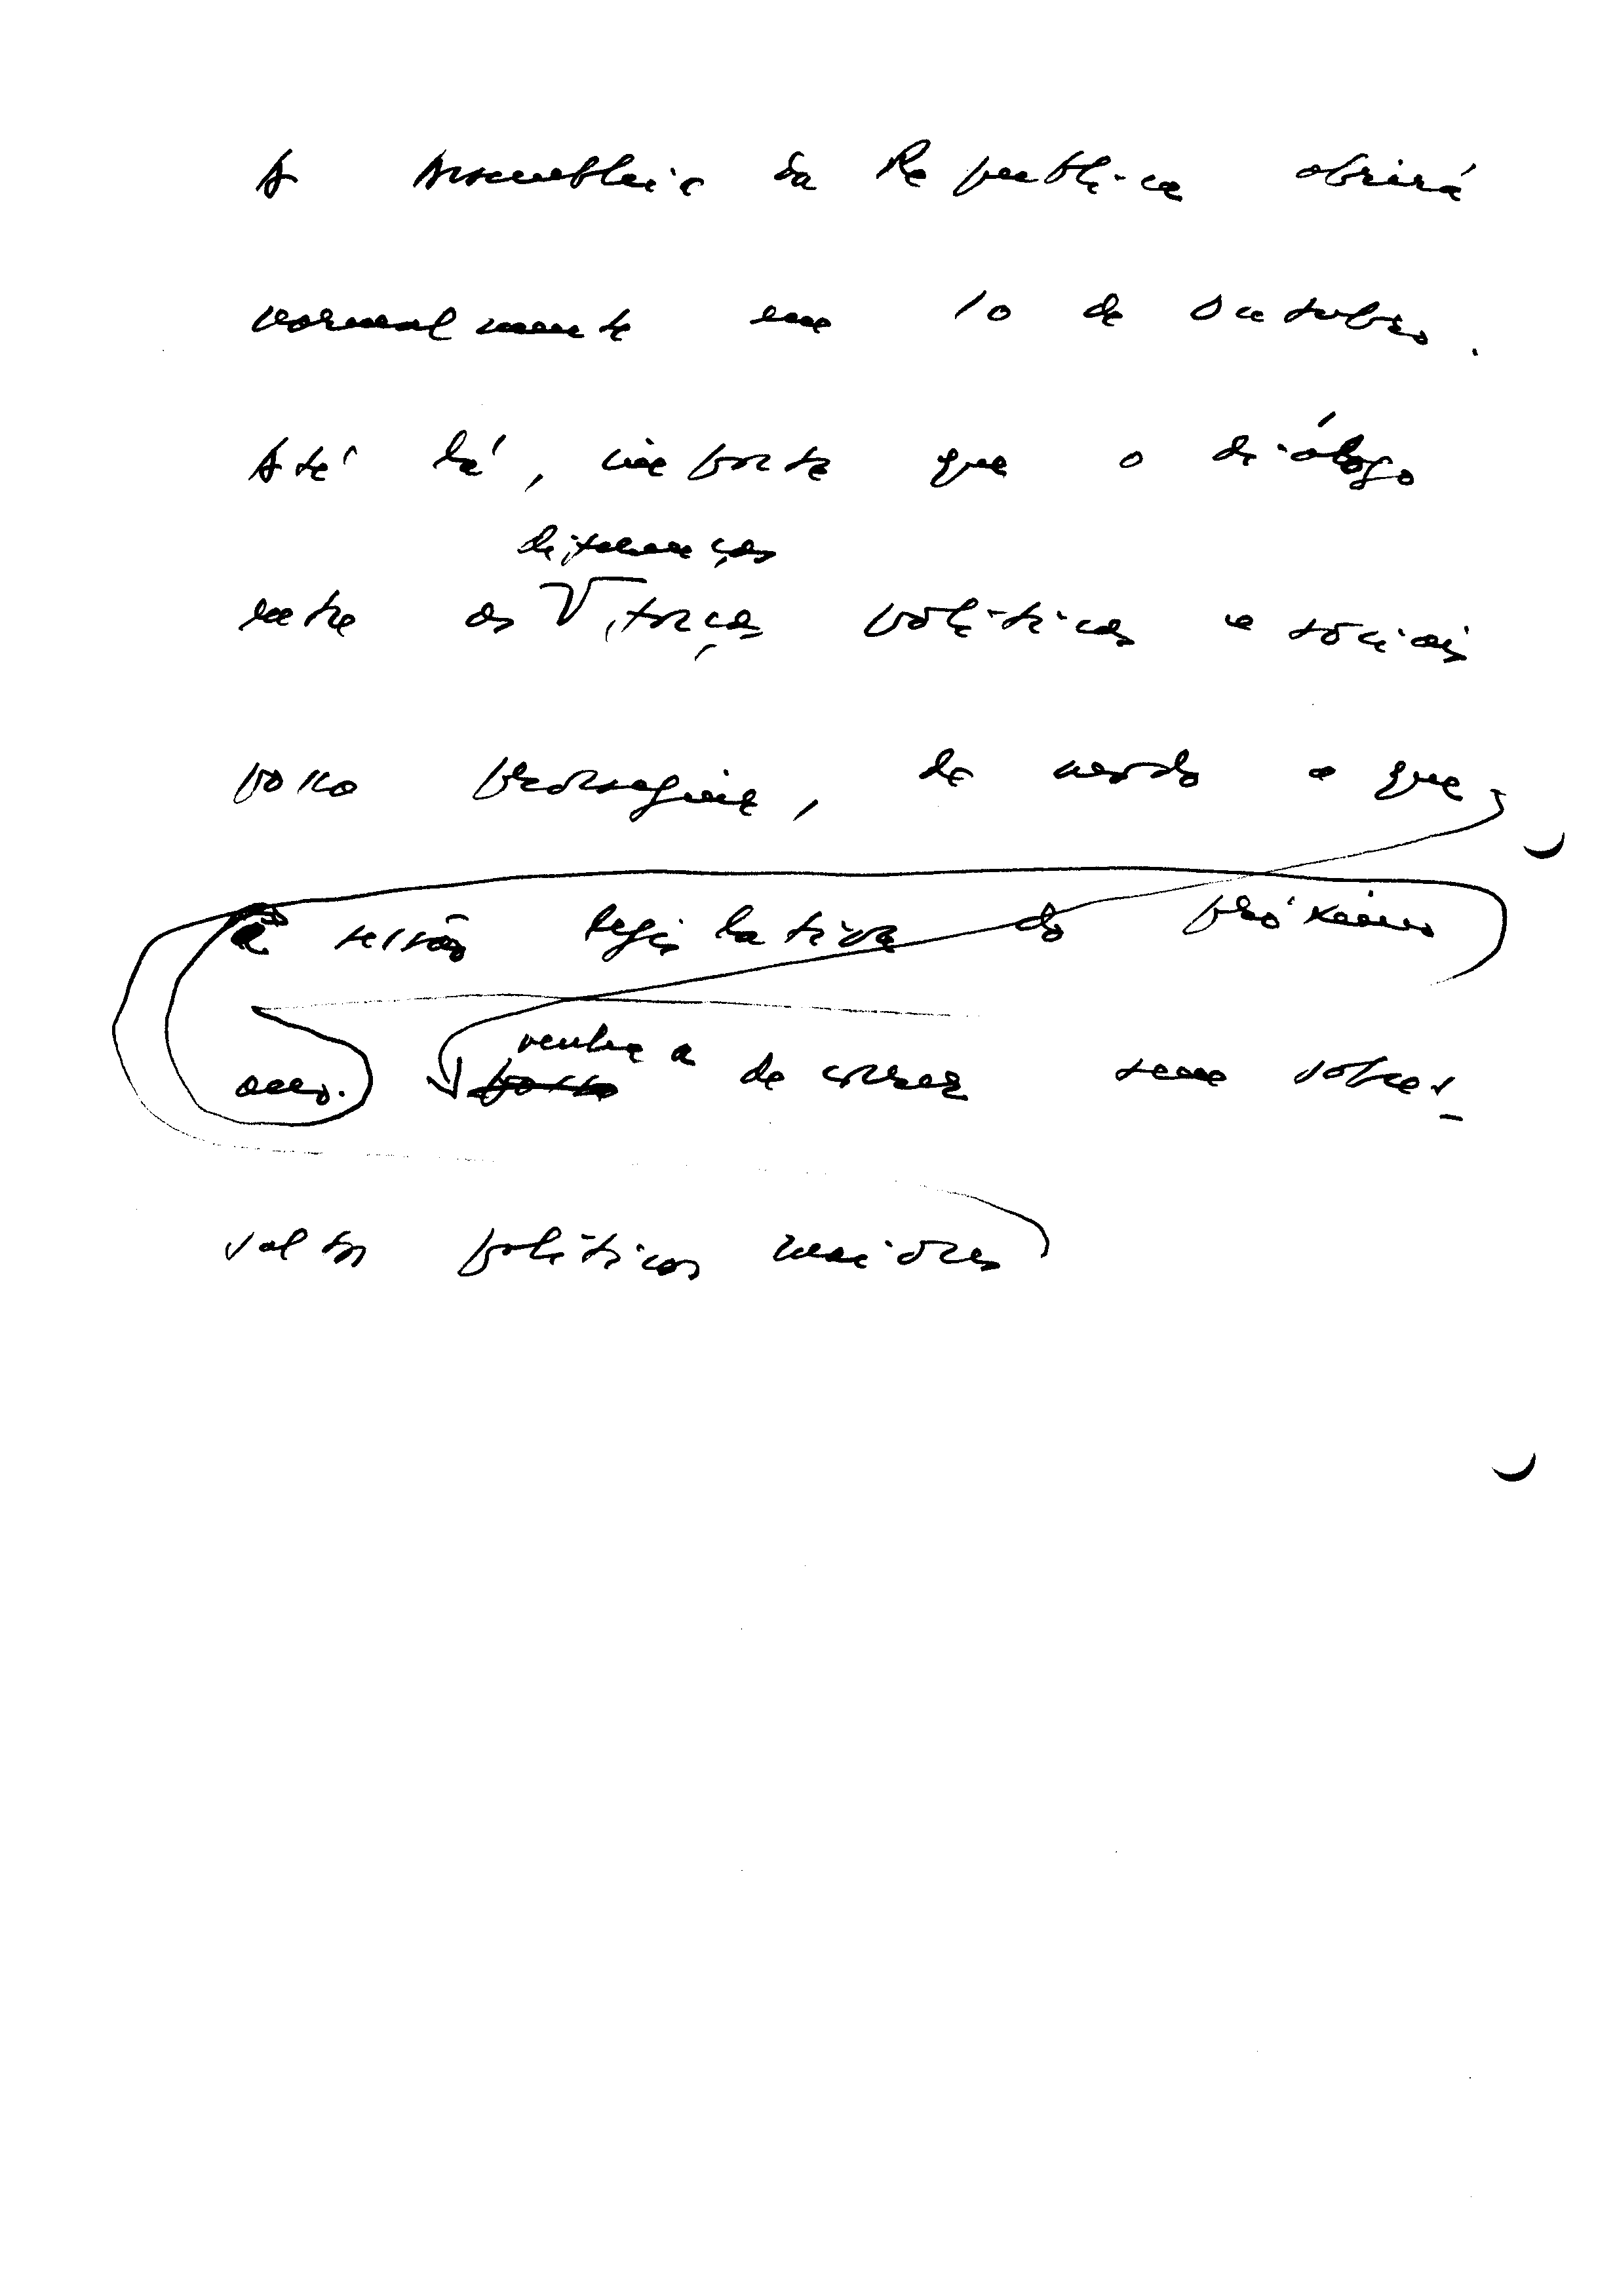 A Assembleia da República abrirá
normalmente em 10 de Outubro.
Até lá, importa que o diálogo
diferenças
entre as forças políticas e sociais
possa prosseguir, de modo a que
a sessão legislativa do próximo
ano.
venha a
posso decorrer sem sobres-
saltos políticos maiores